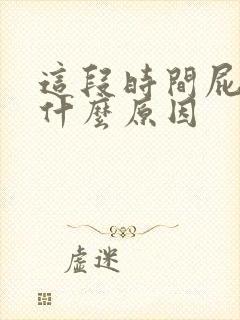 這段時間屁
什麼原因
虛迷